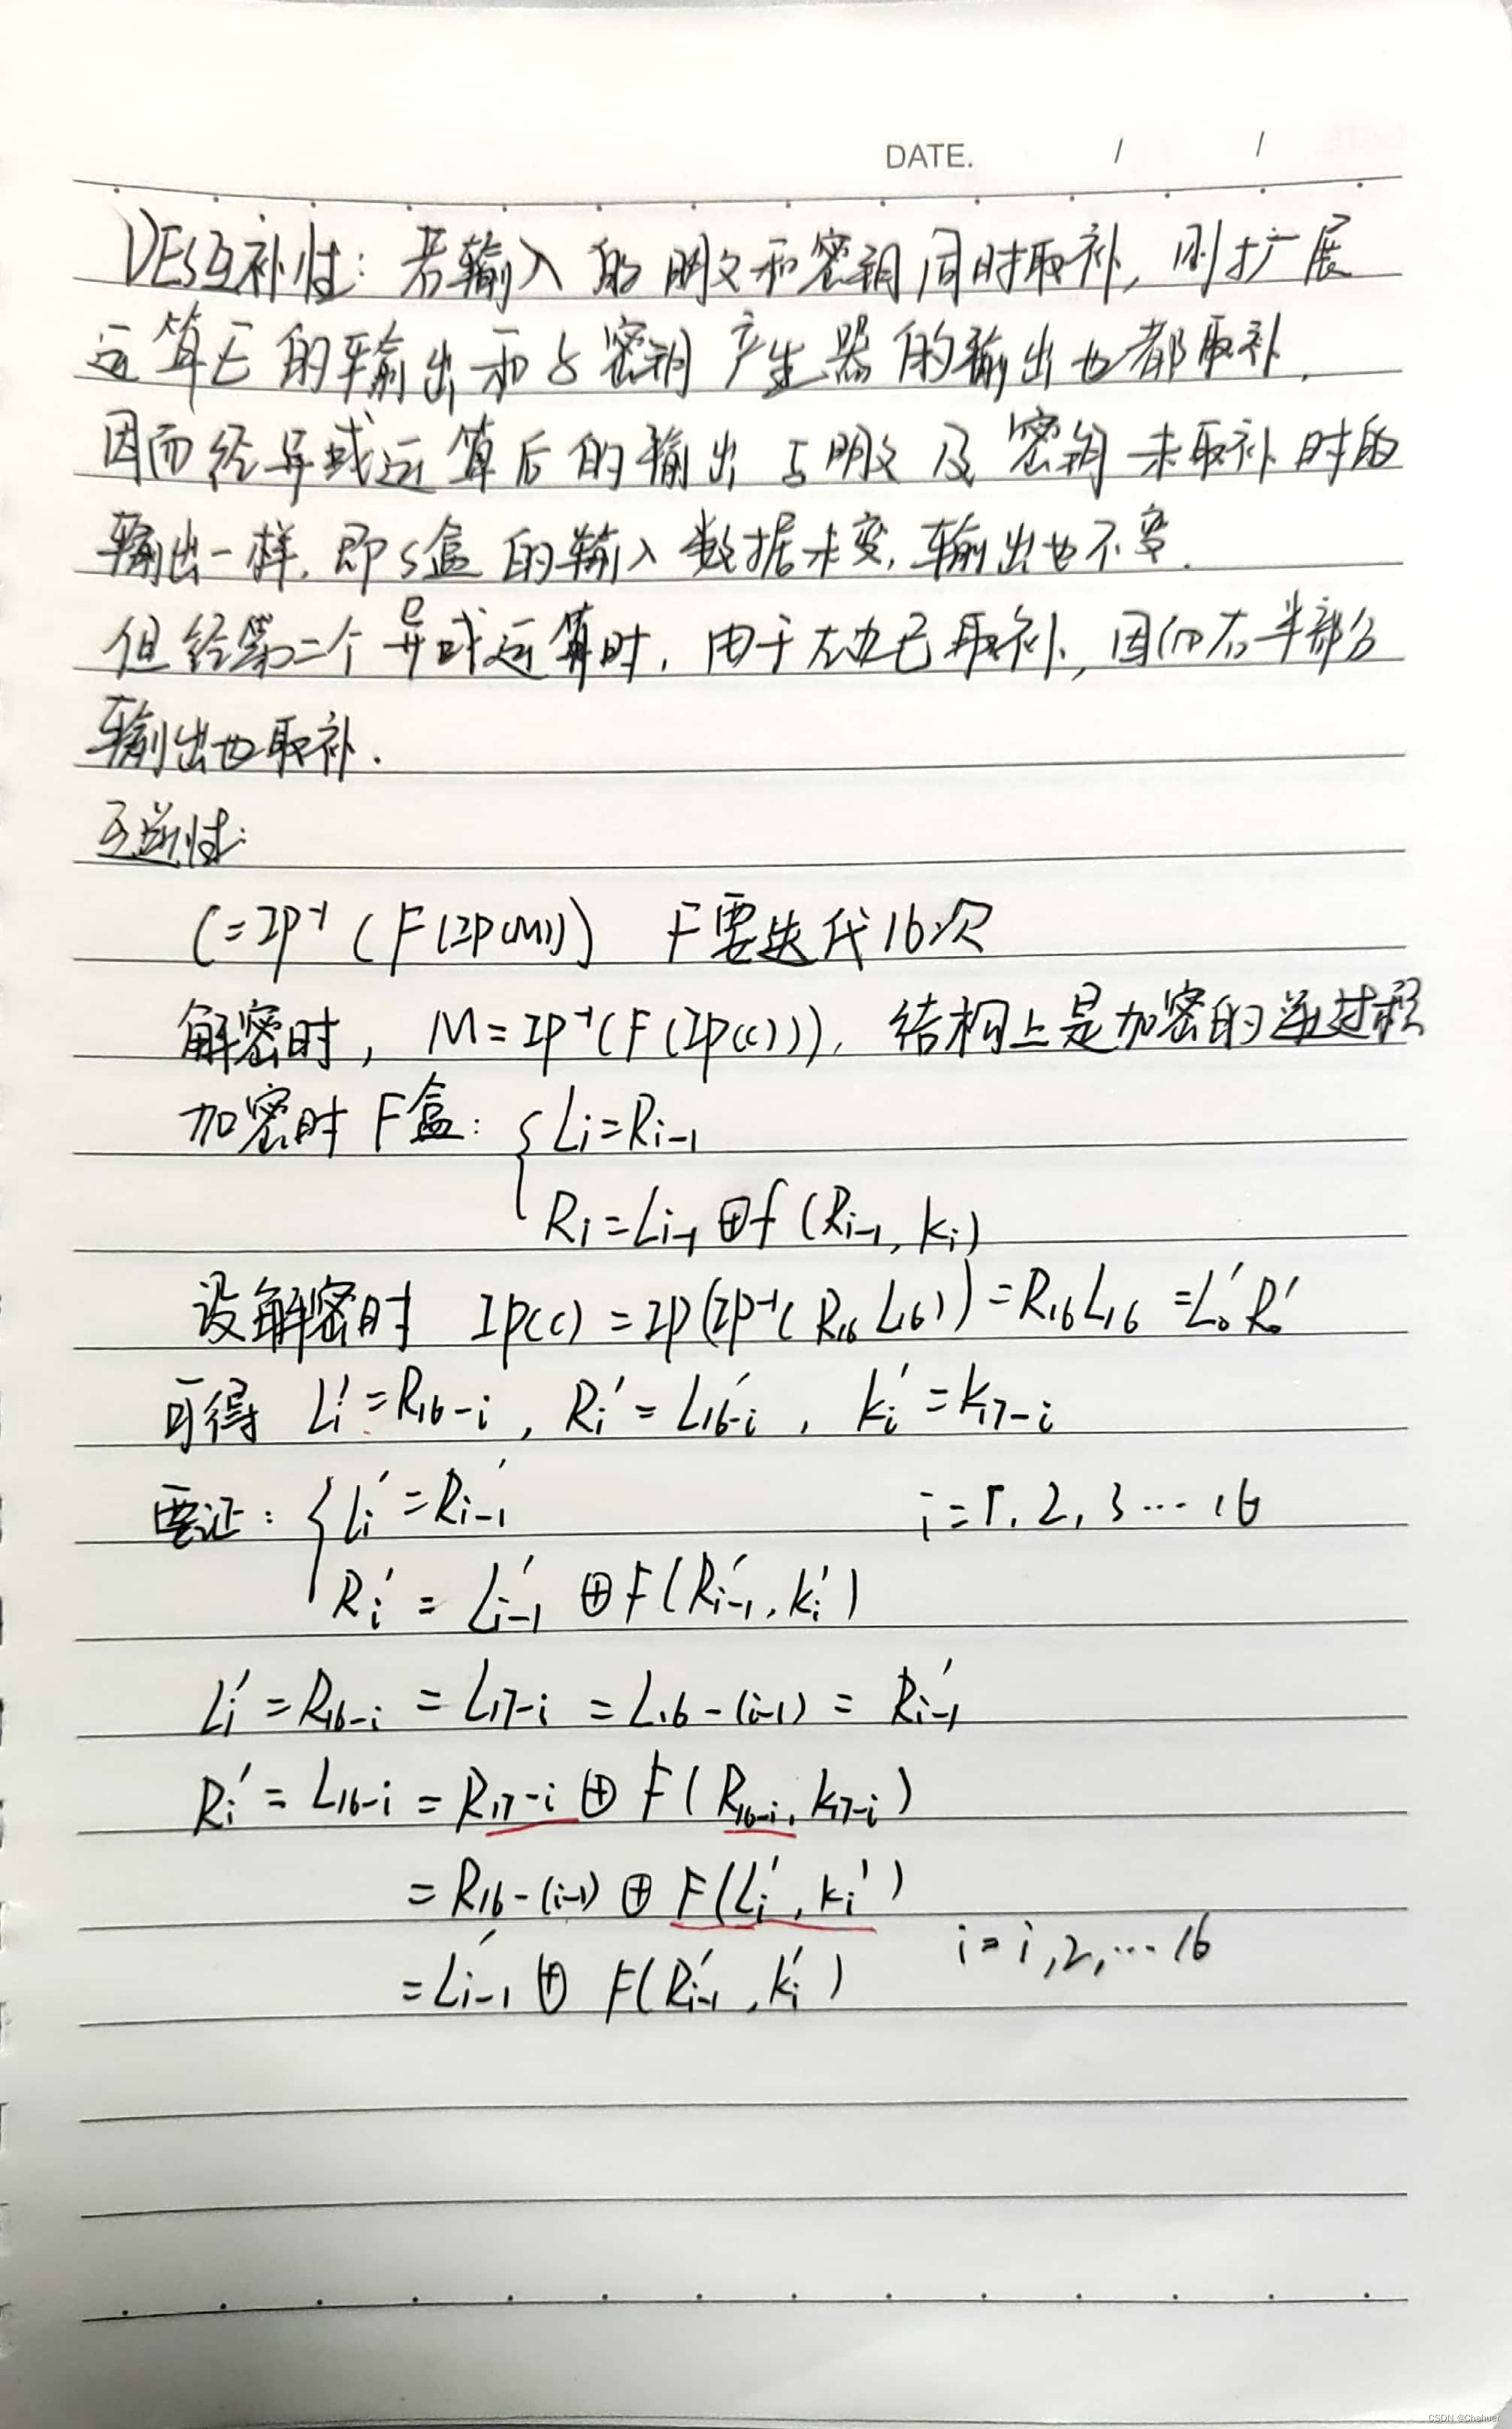 DATE. / /
DES互补性：若输入的明文和密钥同时取补，则扩展
运算E的输出和子密钥产生器的输出也都取补，
因而经异或运算后的输出与明文及密钥未取补时的
输出一样，即S盒的输入数据未变，输出也不变.
但经第二个异或运算时，由于左边已取补，因而右半部分
输出也取补.
互逆性：
C=IP⁻¹(F(IP(M))) F要迭代16次
解密时，M=IP⁻¹(F(IP(C))), 结构上是加密的逆过程
加密时F盒：{ Li=Ri-1
Ri=Li-1⊕f(Ri-1, ki)
设解密时 IP(C)=IP(IP⁻¹(R16 L16))=R16 L16=L0' R0'
可得 Li'=R16-i, Ri'=L16-i, ki'=k17-i
要证：{ Li'=Ri-1' i=1, 2, 3 … 16
Ri'=Li-1'⊕F(Ri-1', ki')
Li'=R16-i=L17-i=L16-(i-1)=Ri-1'
Ri'=L16-i=R17-i⊕F(R16-i, k17-i)
=R16-(i-1)⊕F(Li', ki')
=Li-1'⊕F(Ri-1', ki') i=i, 2, … 16
CSDN @Chahuer